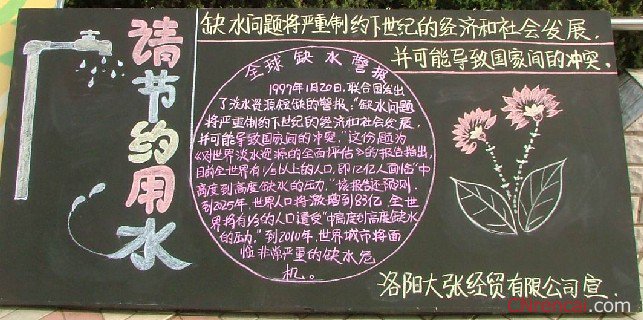 请节约用水
缺水问题将严重制约下世纪的经济和社会发展，
并可能导致国家间的冲突。
全球缺水警报
1997年1月20日，联合国发出
了淡水资源短缺的警报："缺水问题
将严重制约下世纪的经济和社会发展，
并可能导致国家间的冲突。"这份题为
《对世界淡水资源的全面评估》的报告指出，
目前全世界有1/5以上的人口，即12亿人面临"中
高度到高度缺水的压力。"该报告还预测，
到2025年，世界人口将激增到83亿，全世
界将有1/3的人口遭受"中高度到高度缺水
的压力。"到2010年，世界城市将面
临非常严重的缺水危
机。
洛阳大张经贸有限公司宣
Chinncar.com